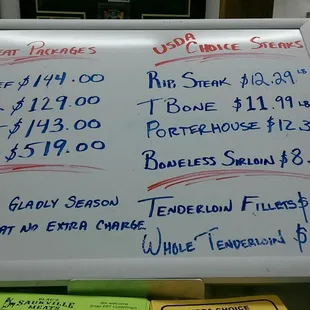 EAT PACKAGES
EF $144.00
$129.00
$143.00
$519.00
GLADLY SEASON
AT NO EXTRA CHARGE
USDA CHOICE STEAKS
RIB STEAK $12.29 LB
T BONE $11.99 LB
PORTERHOUSE $12.3
BONELESS SIRLOIN $8.
TENDERLOIN FILLETS $
WHOLE TENDERLOIN $
SAUKVILLE
MEATS
CHOICE